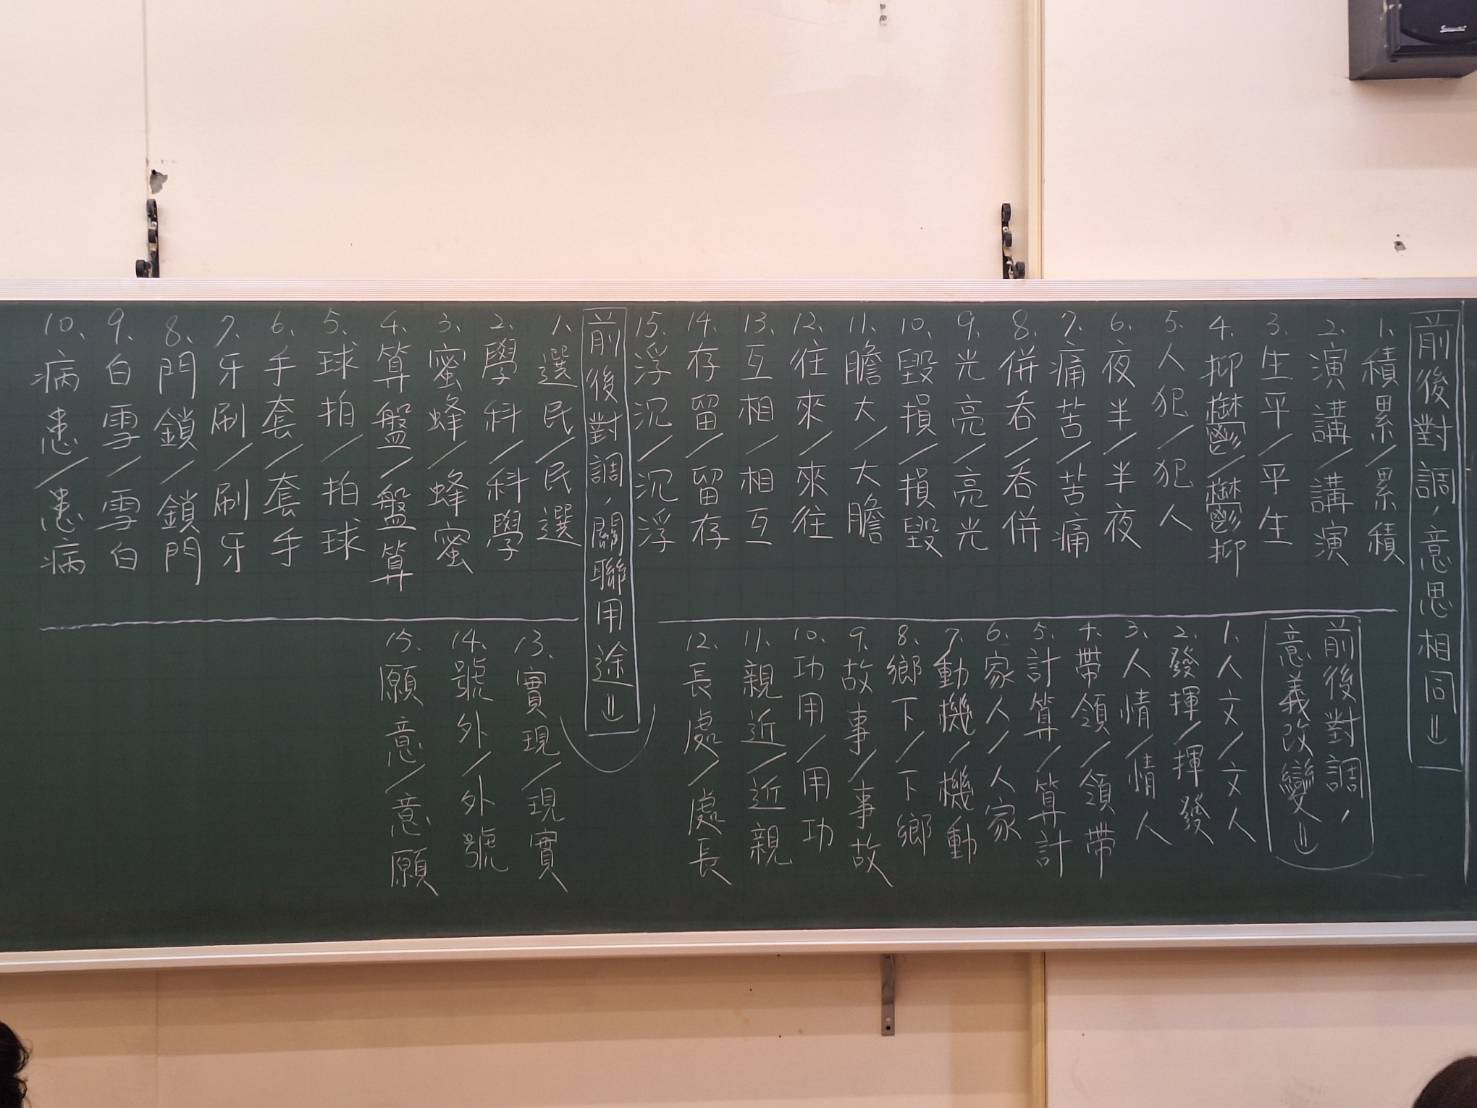 前後對調，意思相同⇓
1、積累/累積
2、演講/講演
3、生平/平生
4、抑鬱/鬱抑
5、人犯/犯人
6、夜半/半夜
7、痛苦/苦痛
8、併吞/吞併
9、光亮/亮光
10、毀損/損毀
11、膽大/大膽
12、往來/來往
13、互相/相互
14、存留/留存
15、浮沉/沉浮
前後對調，
意義改變⇓
1、人文/文人
2、發揮/揮發
3、人情/情人
4、帶領/領帶
5、計算/算計
6、家人/人家
7、動機/機動
8、鄉下/下鄉
9、故事/事故
10、功用/用功
11、親近/近親
12、長處/處長
13、實現/現實
14、號外/外號
15、願意/意願
前後對調，關聯用途⇓
1、選民/民選
2、學科/科學
3、蜜蜂/蜂蜜
4、算盤/盤算
5、球拍/拍球
6、手套/套手
7、牙刷/刷牙
8、門鎖/鎖門
9、白雪/雪白
10、病患/患病